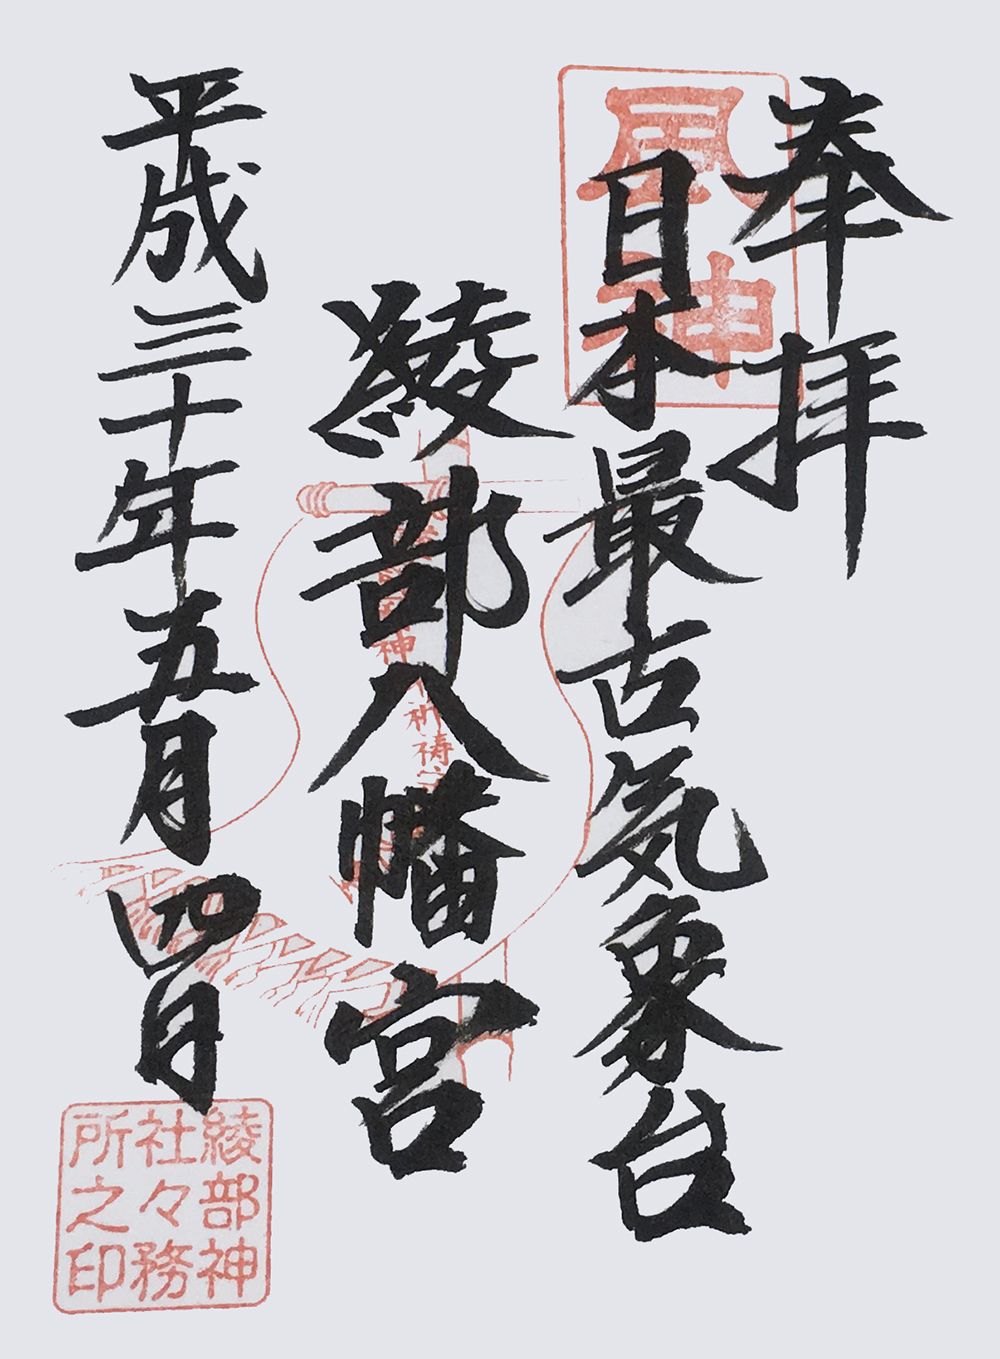 奉拝
風神
日本最古気象台
綾部八幡宮
神
祈祷
平成三十年五月四日
綾部神
社々務
所之印